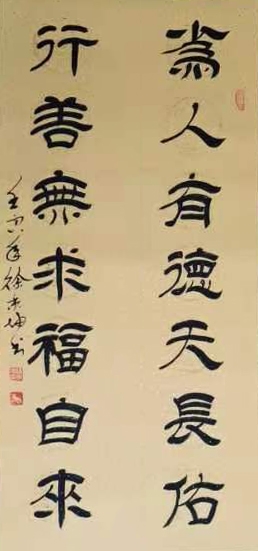 為人有德天長佑
行善無求福自來
壬寅年徐